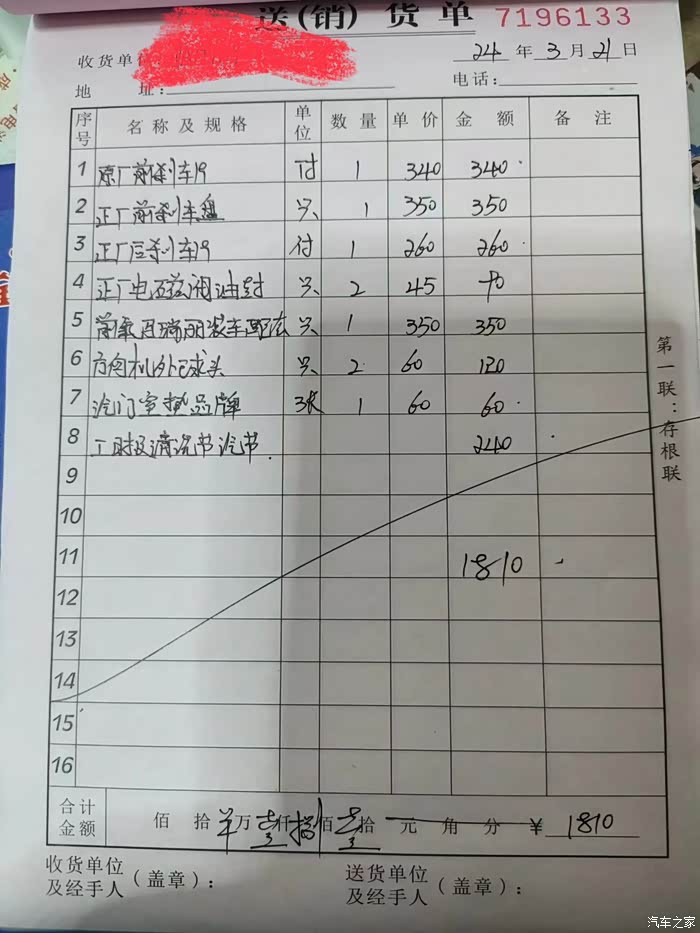 送(销)货单 7196133
收货单位 24年3月21日
地 址： 电话：
序号 名称及规格 单位 数量 单价 金额 备注
1 原厂前刹车片 付 1 340 340
2 正厂前刹车盘 只 1 350 350
3 正厂后刹车片 付 1 260 260
4 正厂电磁阀油封 只 2 45 90
5 1 350 350
6 方向机外球头 只 2 60 120
7 汽门室垫品牌 张 1 60 60
8 工时及清洗节汽节 240
9
10
11 1810
12
13
14
15
16
合计金额 佰 拾 万 仟 佰 拾 元 角 分 ¥ 1810
收货单位及经手人（盖章）： 送货单位及经手人（盖章）：
第一联：存根联
汽车之家